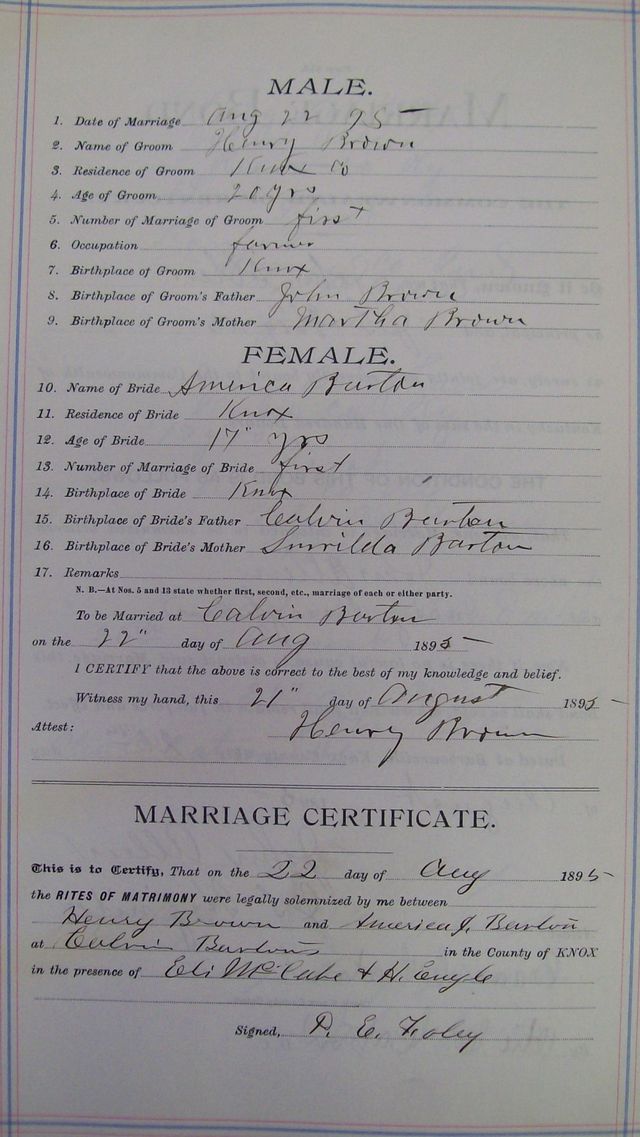 MALE.
1. Date of Marriage Aug 22 95
2. Name of Groom Henry Brown
3. Residence of Groom Knox Co
4. Age of Groom 20 yrs
5. Number of Marriage of Groom first
6. Occupation farmer
7. Birthplace of Groom Knox
8. Birthplace of Groom's Father John Brown
9. Birthplace of Groom's Mother Martha Brown
FEMALE.
10. Name of Bride America Burton
11. Residence of Bride Knox
12. Age of Bride 17" yrs
13. Number of Marriage of Bride first
14. Birthplace of Bride Knox
15. Birthplace of Bride's Father Calvin Burton
16. Birthplace of Bride's Mother Surrilda Barton
17. Remarks
N. B.—At Nos. 5 and 13 state whether first, second, etc., marriage of each or either party.
To be Married at Calvin Burton
on the 22" day of Aug 1895
I CERTIFY that the above is correct to the best of my knowledge and belief.
Witness my hand, this 21" day of August 1895
Attest: Henry Brown
MARRIAGE CERTIFICATE.
This is to Certify, That on the 22 day of Aug 1895
the RITES OF MATRIMONY were legally solemnized by me between
Henry Brown and America J. Burton
at Calvin Burtons in the County of KNOX
in the presence of Eli McCabe & H. Engle
Signed, D. E. Foley